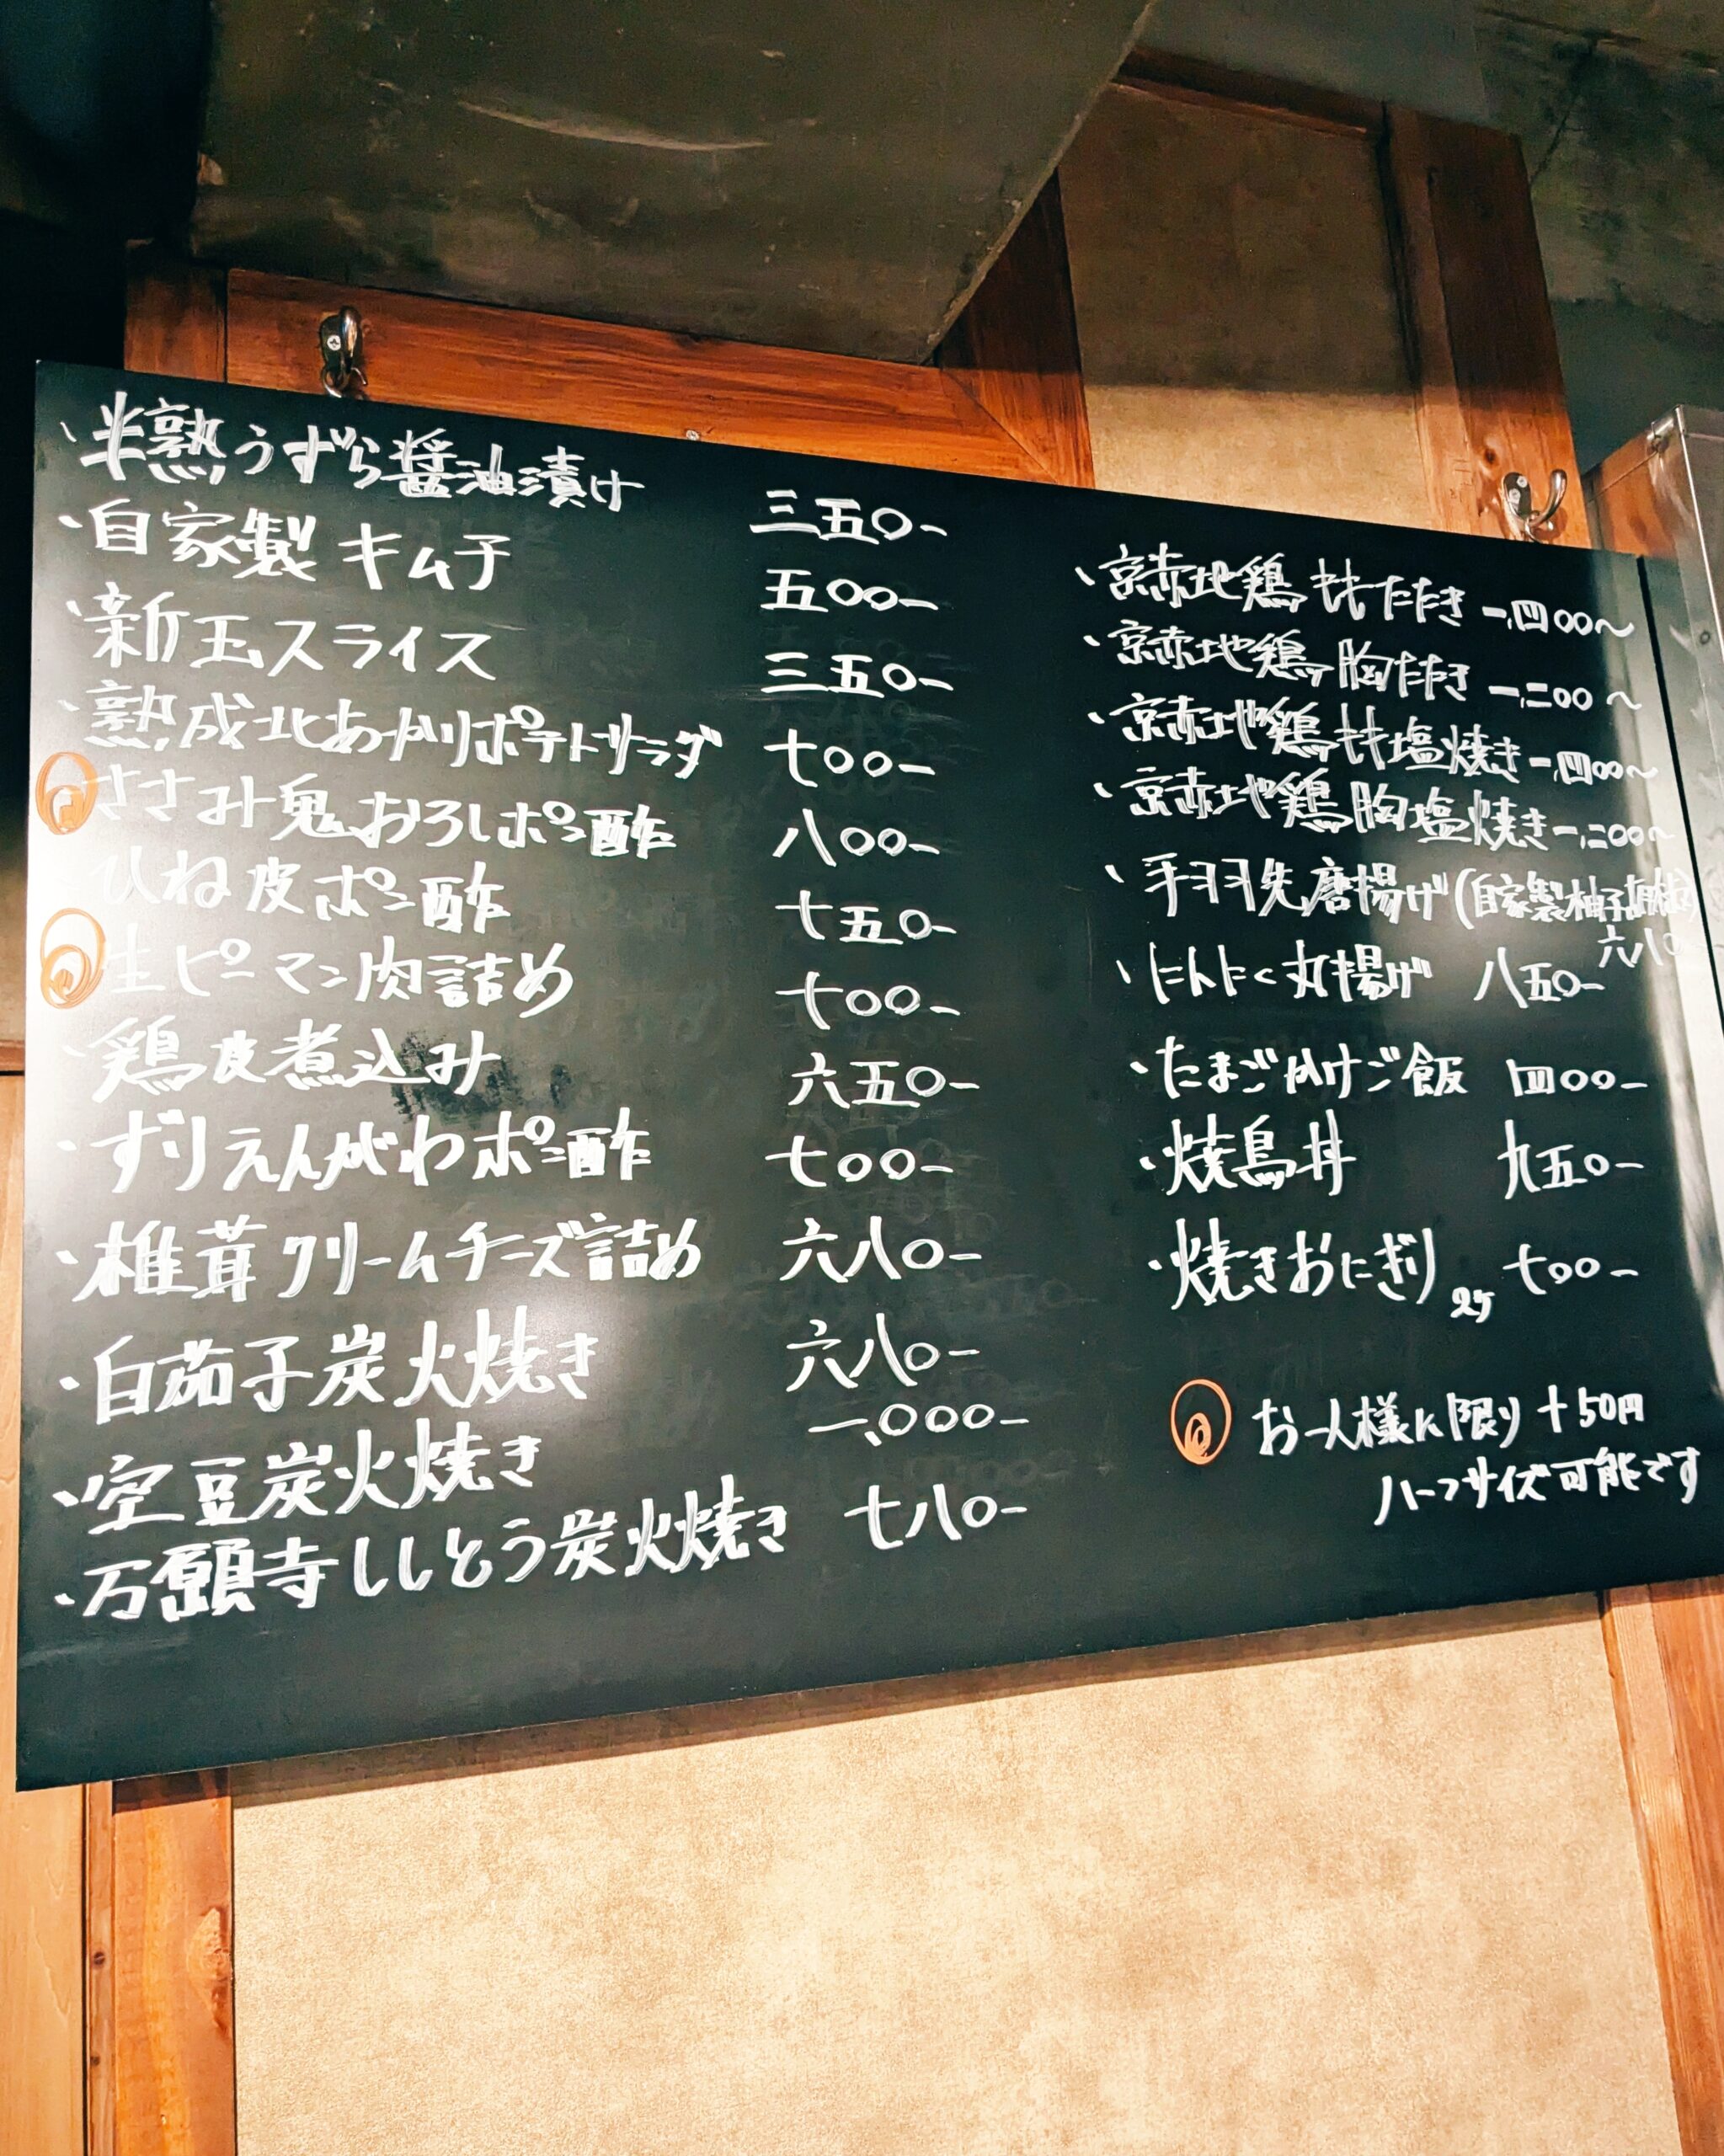 ・半熟うずら醤油漬け 三五〇-
・自家製キム子 五〇〇-
・新玉スライス 三五〇-
・熟成北あかりポテトサラダ 七〇〇-
ささみ鬼おろしポン酢 八〇〇-
ひね皮ポン酢 七五〇-
生ピーマン肉詰め 七〇〇-
・鶏皮煮込み 六五〇-
・ずりえんがわポン酢 七〇〇-
・椎茸クリームチーズ詰め 六八〇-
・白茄子炭火焼き 六八〇-
・空豆炭火焼き 一、〇〇〇-
・万願寺ししとう炭火焼き 七八〇-
・京赤地鶏ももたたき 一、四〇〇〜
・京赤地鶏胸たたき 一、二〇〇〜
・京赤地鶏もも塩焼き 一、四〇〇〜
・京赤地鶏胸塩焼き 一、二〇〇〜
・手羽先唐揚げ(自家製柚子胡椒)
六八〇
・にんにく丸揚げ 八五〇-
・たまごかけご飯 四〇〇-
・焼鳥丼 九五〇-
・焼きおにぎり 2ケ 七〇〇-
お一人様に限り+50円
ハーフサイズ可能です